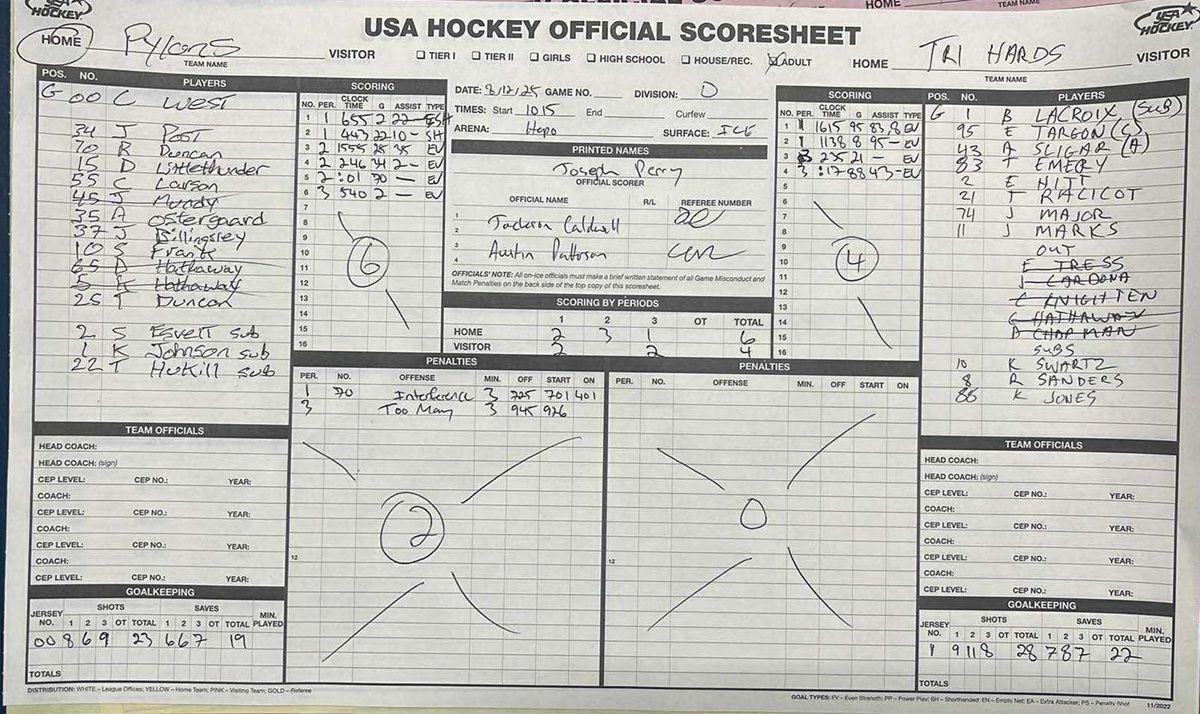 HOME
TEAM NAME
USA HOCKEY
USA HOCKEY OFFICIAL SCORESHEET
USA HOCKEY
HOME Pylons
TEAM NAME
VISITOR ☐ TIER I ☐ TIER II ☐ GIRLS ☐ HIGH SCHOOL ☐ HOUSE/REC. ☒ ADULT HOME
TRI HARDS VISITOR
TEAM NAME
POS. NO. PLAYERS
G 00 C West
34 J Post
70 R Duncan
15 D Littlethunder
55 C Larson
45 J Moody
35 A Ostergaard
37 J Billingsley
10 S Frank
65 D Hathaway
5 Hathaway
25 T Duncan
2 S Esvelt sub
K Johnson sub
22 T Hukill sub
SCORING
NO. PER. CLOCK TIME G ASSIST TYPE
1 1 655 2 22 SH
2 1 443 22 10 - SH
3 2 1555 25 35 EV
4 2 246 34 2 - EV
5 2 :01 70 - EV
6 3 540 2 - EV
7
8
9
10
11
12
13
14
15
16
6
DATE: 8/12/25 GAME NO. DIVISION: D
TIMES: Start 1015 End Curfew
ARENA: Hepo SURFACE: ICE
PRINTED NAMES
Joseph Perry
OFFICIAL SCORER
OFFICIAL NAME R/L REFEREE NUMBER
1
2 Jackson Caldwell
3 Austin Patterson
4
OFFICIALS' NOTE: All on-ice officials must make a brief written statement of all Game Misconduct and
Match Penalties on the back side of the top copy of this scoresheet.
SCORING BY PERIODS
1 2 3 OT TOTAL
HOME 2 3 1 6
VISITOR 2 2 4
SCORING
NO. PER. CLOCK TIME G ASSIST TYPE
1 1 1615 95 83,8 EV
2 1 1138 8 95 - EV
3 3 235 21 - EV
4 3 :17 88 43 - EV
5
6
7
8
9
10
11
12
13
14
15
16
4
POS. NO. PLAYERS
G 1 B LACROIX (SUB)
95 E TARGON (C)
43 A SLIGAR (A)
83 T EMERY
2 E HITT
21 T RALICOT
74 J MAJOR
11 J MARKS
OUT
E TRESS
J CARDONA
C KNIGHTEN
G HATHAWAY
D CHAPMAN
SUBS
10 K SWARTZ
8 R SANDERS
K JONES
PENALTIES
PER. NO. OFFENSE MIN. OFF START ON
1 70 Interference 3 725 701 401
3 Too Many 3 945 926
12
2
PENALTIES
PER. NO. OFFENSE MIN. OFF START ON
12
0
TEAM OFFICIALS
HEAD COACH:
HEAD COACH: (sign)
CEP LEVEL: CEP NO.: YEAR:
COACH:
CEP LEVEL: CEP NO.: YEAR:
COACH:
CEP LEVEL: CEP NO.: YEAR:
COACH:
CEP LEVEL: CEP NO.: YEAR:
GOALKEEPING
JERSEY NO. SHOTS SAVES MIN. PLAYED
1 2 3 OT TOTAL 1 2 3 OT TOTAL
00 8 6 9 23 6 6 7 19
TOTALS
TEAM OFFICIALS
HEAD COACH:
HEAD COACH: (sign)
CEP LEVEL: CEP NO.: YEAR:
COACH:
CEP LEVEL: CEP NO.: YEAR:
COACH:
CEP LEVEL: CEP NO.: YEAR:
COACH:
CEP LEVEL: CEP NO.: YEAR:
GOALKEEPING
JERSEY NO. SHOTS SAVES MIN. PLAYED
1 2 3 OT TOTAL 1 2 3 OT TOTAL
1 9 11 8 28 7 8 7 22
TOTALS
DISTRIBUTION: WHITE – League Offices; YELLOW – Home Team; PINK – Visiting Team; GOLD – Referee
GOAL TYPES: EV – Even Strength; PP – Power Play; SH – Shorthanded; EN – Empty Net; EA – Extra Attacker; PS – Penalty Shot 11/2022